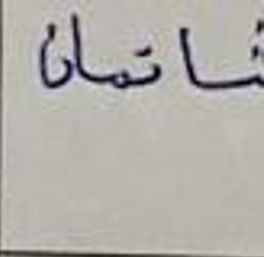 شا تمان